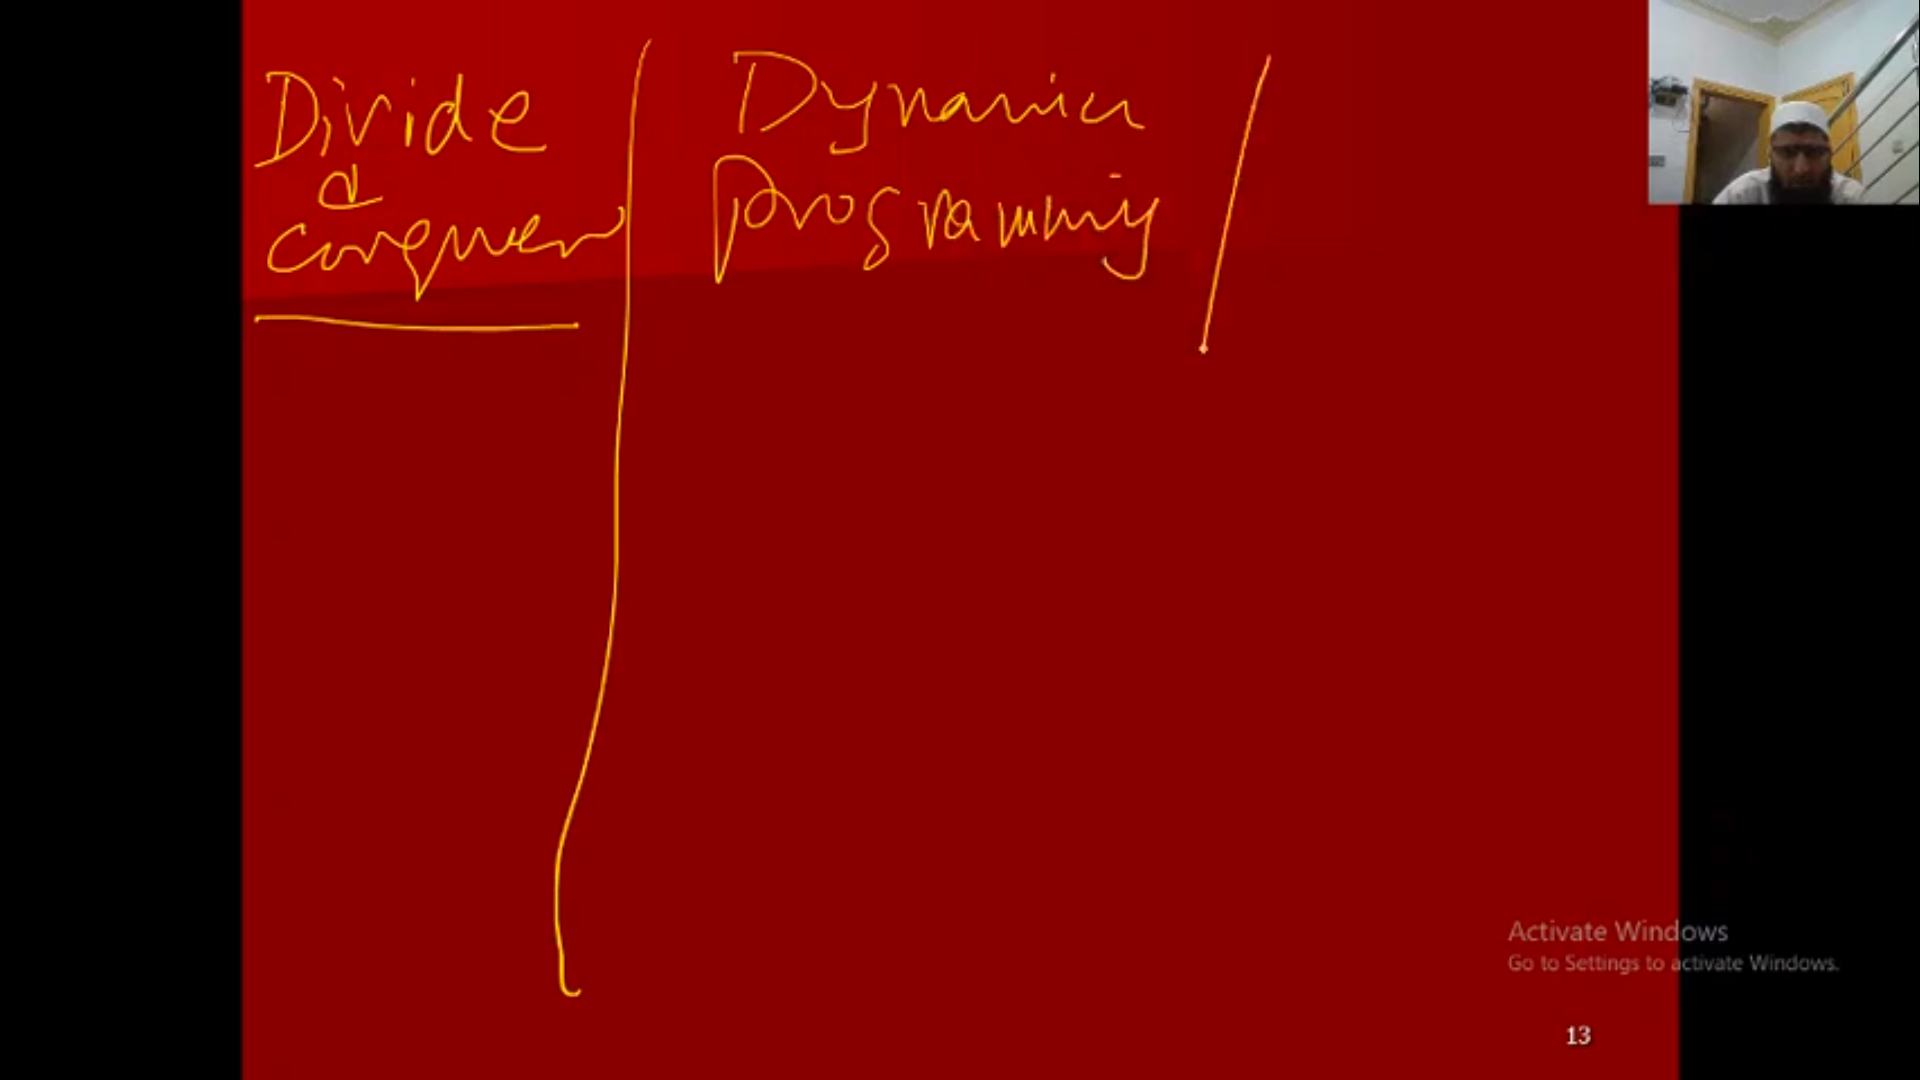 Divide
&
conquer
Dynamic
Programming
Activate Windows
Go to Settings to activate Windows.
13